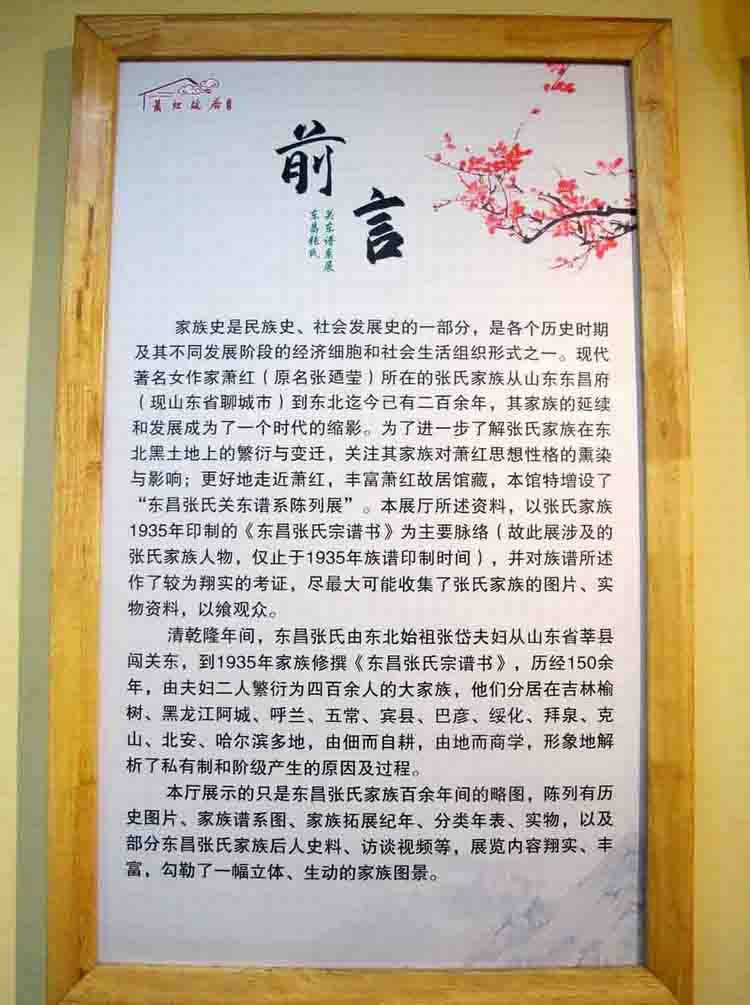 萧红故居
前言
东昌张氏
关东谱系展
家族史是民族史、社会发展史的一部分，是各个历史时期
及其不同发展阶段的经济细胞和社会生活组织形式之一。现代
著名女作家萧红（原名张廼莹）所在的张氏家族从山东东昌府
（现山东省聊城市）到东北迄今已有二百余年，其家族的延续
和发展成为了一个时代的缩影。为了进一步了解张氏家族在东
北黑土地上的繁衍与变迁，关注其家族对萧红思想性格的熏染
与影响；更好地走近萧红，丰富萧红故居馆藏，本馆特增设了
“东昌张氏关东谱系陈列展”。本展厅所述资料，以张氏家族
1935年印制的《东昌张氏宗谱书》为主要脉络（故此展涉及的
张氏家族人物，仅止于1935年族谱印制时间），并对族谱所述
作了较为翔实的考证，尽最大可能收集了张氏家族的图片、实
物资料，以飨观众。
清乾隆年间，东昌张氏由东北始祖张岱夫妇从山东省莘县
闯关东，到1935年家族修撰《东昌张氏宗谱书》，历经150余
年，由夫妇二人繁衍为四百余人的大家族，他们分居在吉林榆
树、黑龙江阿城、呼兰、五常、宾县、巴彦、绥化、拜泉、克
山、北安、哈尔滨多地，由佃而自耕，由地而商学，形象地解
析了私有制和阶级产生的原因及过程。
本厅展示的只是东昌张氏家族百余年间的略图，陈列有历
史图片、家族谱系图、家族拓展纪年、分类年表、实物，以及
部分东昌张氏家族后人史料、访谈视频等，展览内容翔实、丰
富，勾勒了一幅立体、生动的家族图景。